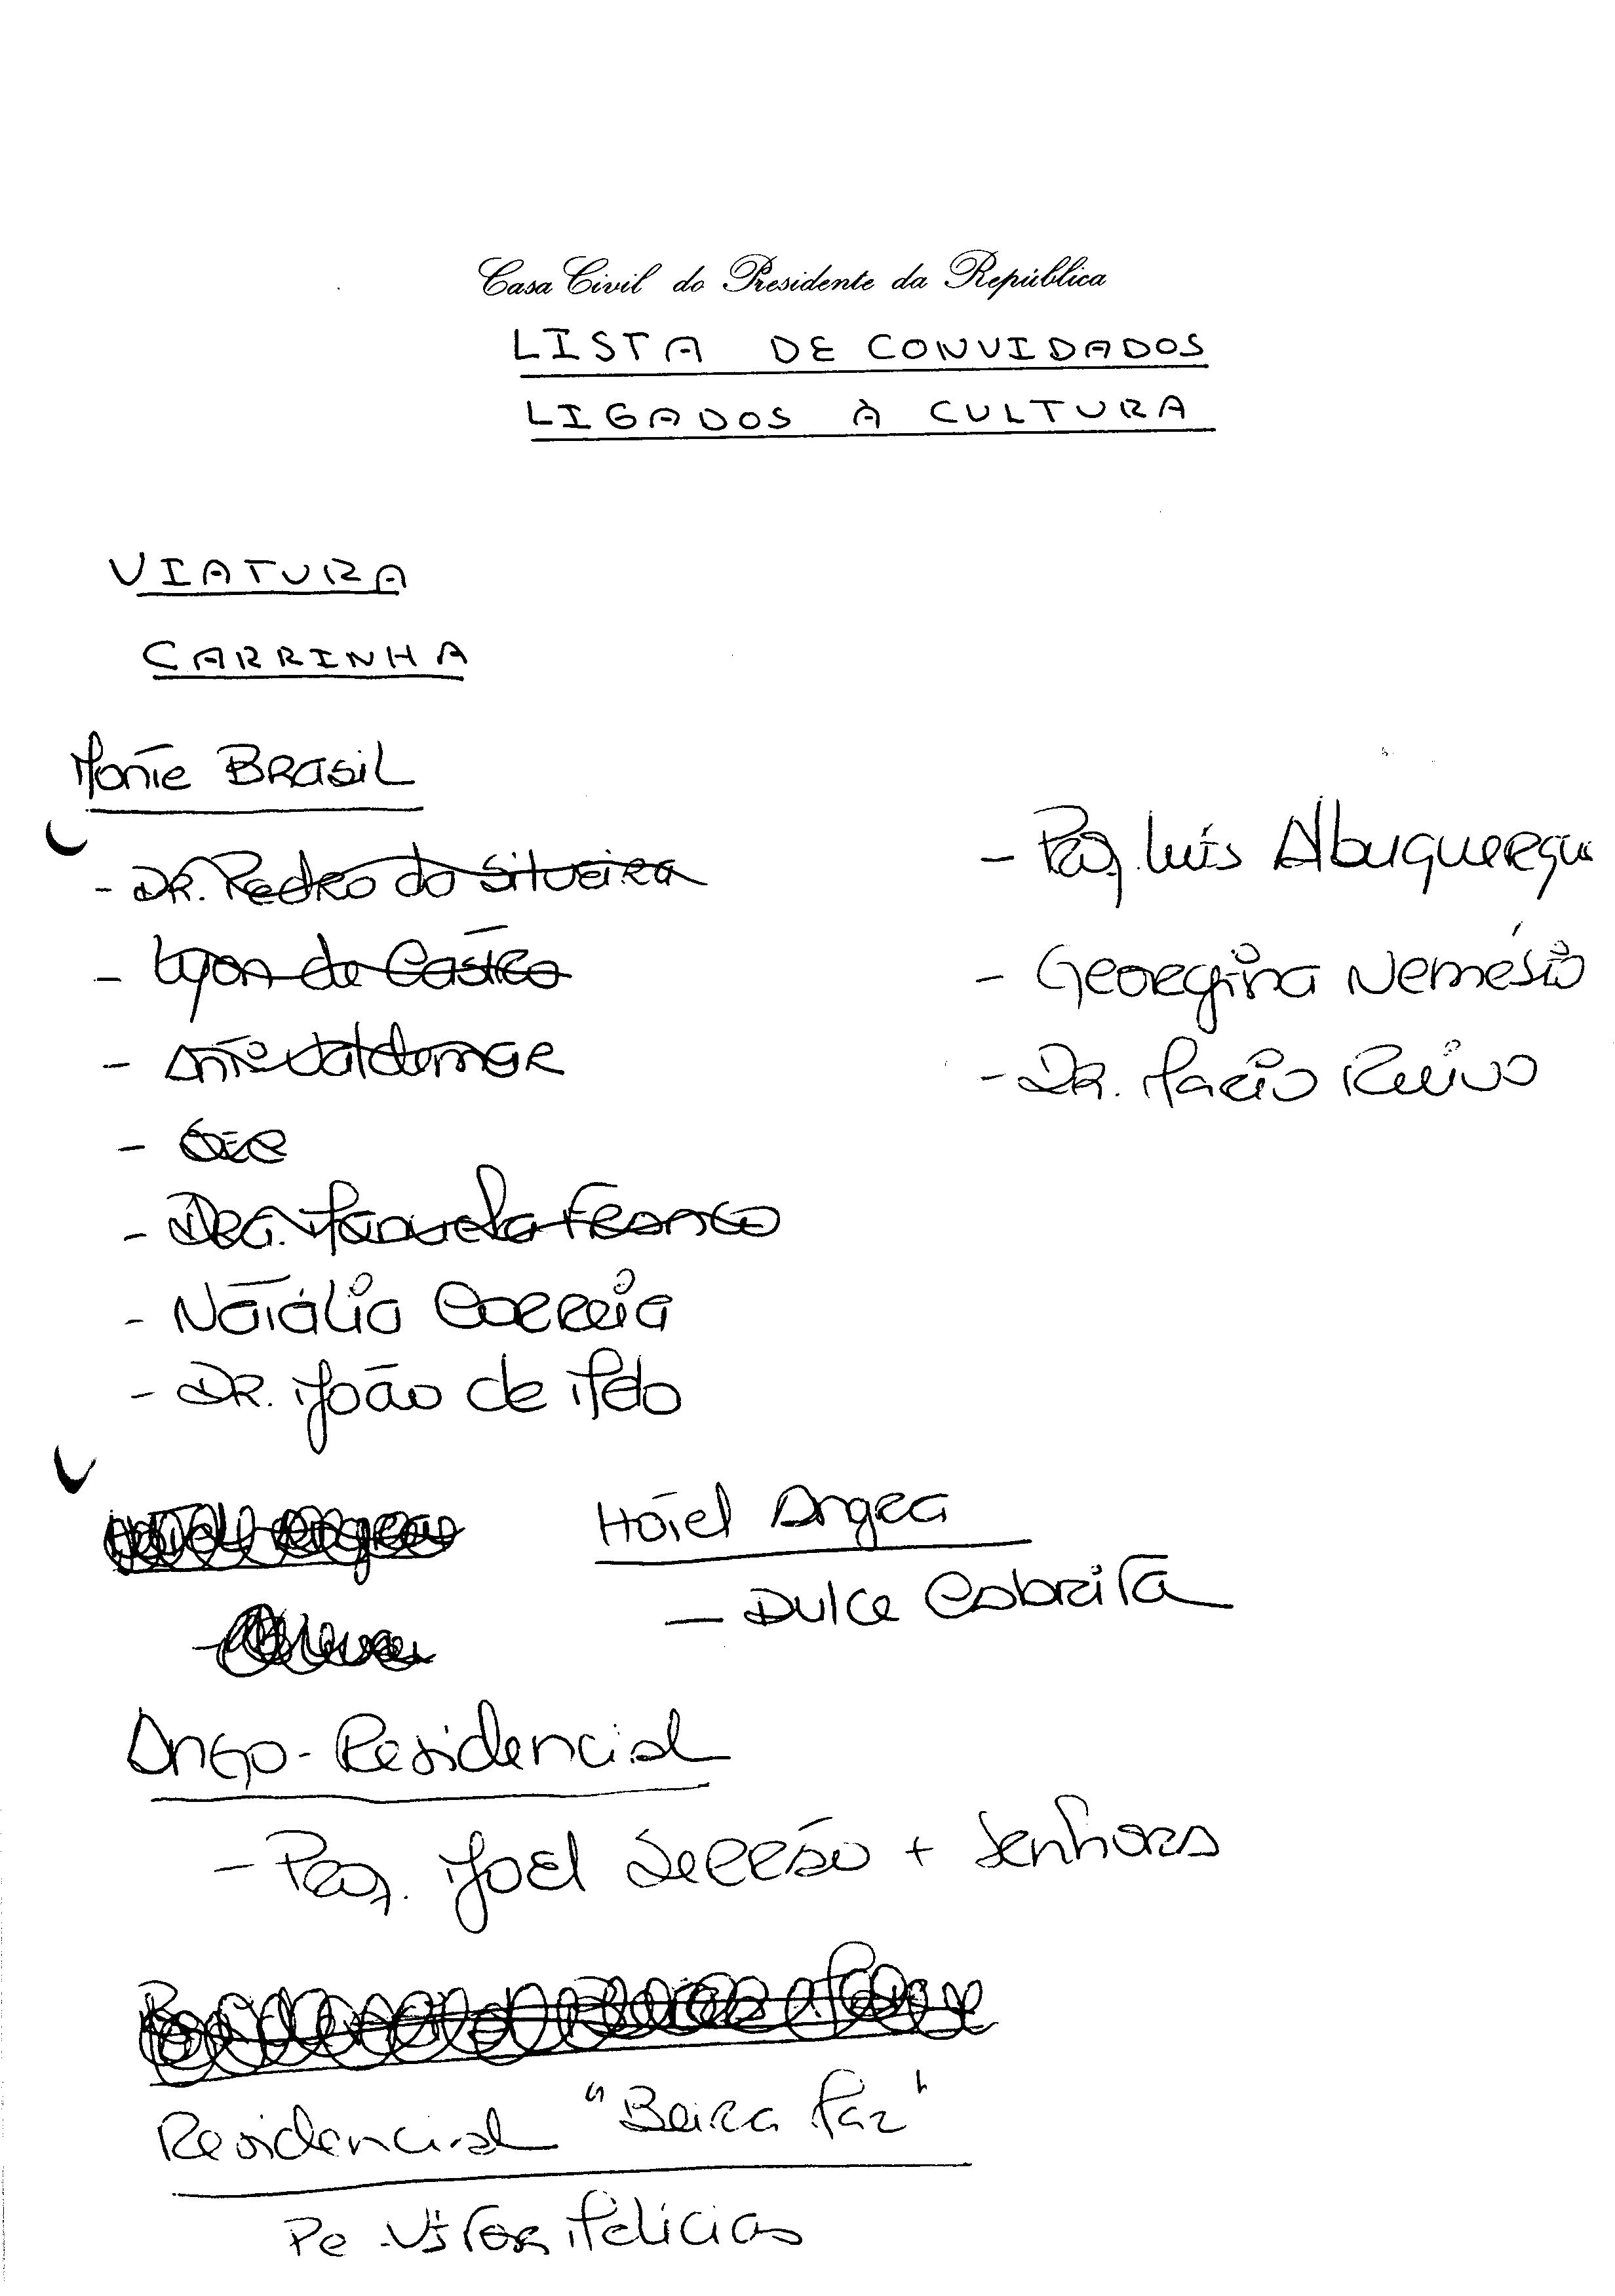 Casa Civil do Presidente da República
LISTA DE CONVIDADOS
LIGADOS À CULTURA
VIATURA
CARRINHA
Monte BRASIL
- DR. Pedro da Silveira
- Lyon de Castro
- Antº Valdemar
-
- DRA. Manuela FRANCO
- Natália CORREIA
- DR. João de Melo
- Prof. Luís Albuquerque
- Georgina Nemésio
- DR. Mário Ruivo
Hotel Angra
Hotel Angra
- Dulce Cabrita
-
Ango-Residencial
- Prof. Joel Serrão + Senhora
Residencial Beira Mar
Residencial "Beira Mar"
Pe Vítor Melícias